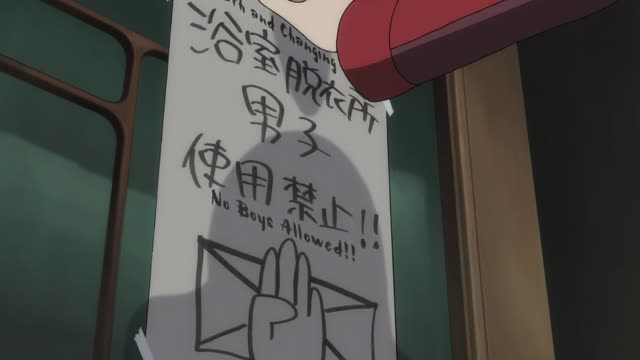 and Changing
浴室脱衣所
男子
使用禁止!!
No Boys Allowed!!